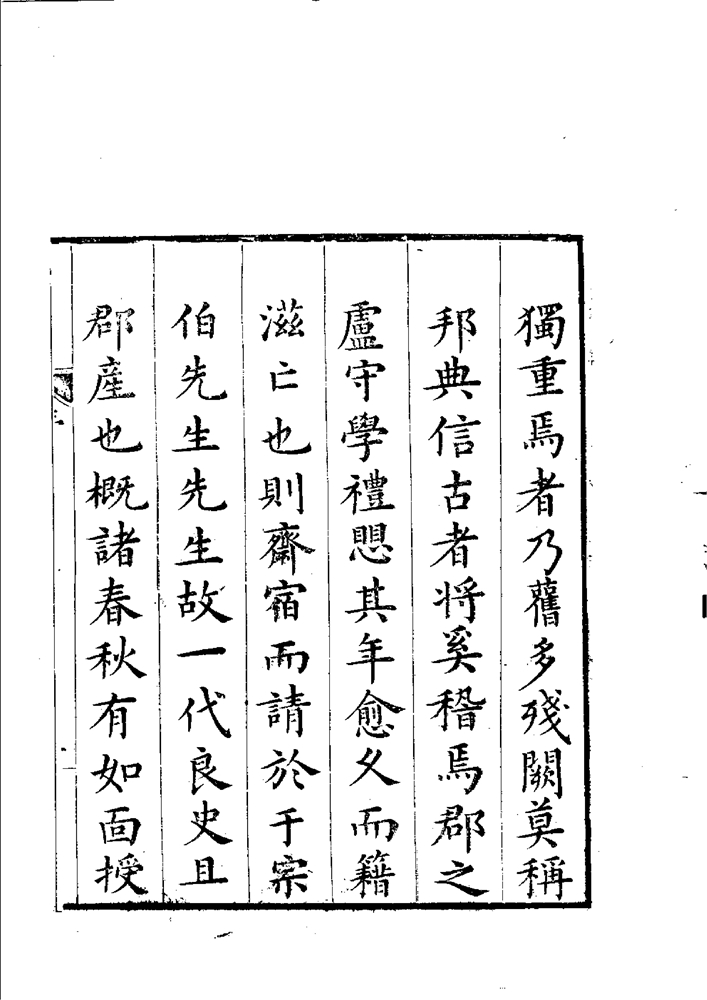 獨重焉者乃舊多殘闕莫稱
邦典信古者将奚稽焉郡之
盧守學禮愳其年愈久而籍
滋亡也則齋宿而請於于宗
伯先生先生故一代良史且
郡産也概諸春秋有如面授
三